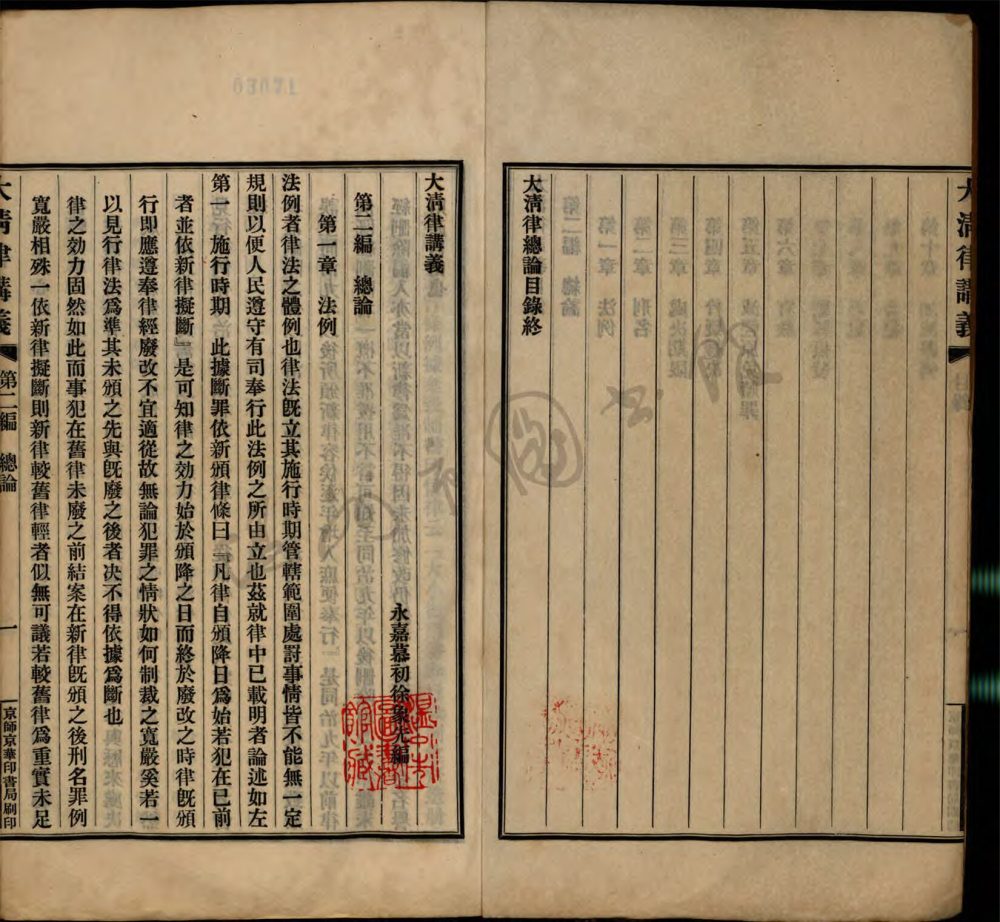 大淸律講義
大淸律總論目錄終
大淸律講義
永嘉慕初徐象先編
第二編　總論
第一章　法例
法例者律法之體例也律法旣立其施行時期管轄範圍處罰事情皆不能無一定
規則以便人民遵守有司奉行此法例之所由立也茲就律中已載明者論述如左
第一　施行時期　此據斷罪依新頒律條曰『凡律自頒降日爲始若犯在已前
者並依新律擬斷』是可知律之効力始於頒降之日而終於廢改之時律旣頒
行即應遵奉律經廢改不宜適從故無論犯罪之情狀如何制裁之寬嚴奚若一
以見行律法爲準其未頒之先與旣廢之後者決不得依據爲斷也
律之効力固然如此而事犯在舊律未廢之前結案在新律旣頒之後刑名罪例
寬嚴相殊一依新律擬斷則新律較舊律輕者似無可議若較舊律爲重實未足
大淸律講義　第二編　總論　一　京師京華印書局刷印